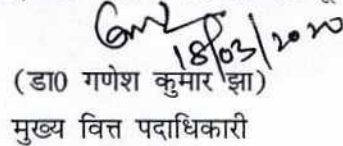 18/03/2020
(डा0 गणेश कुमार झा)
मुख्य वित्त पदाधिकारी